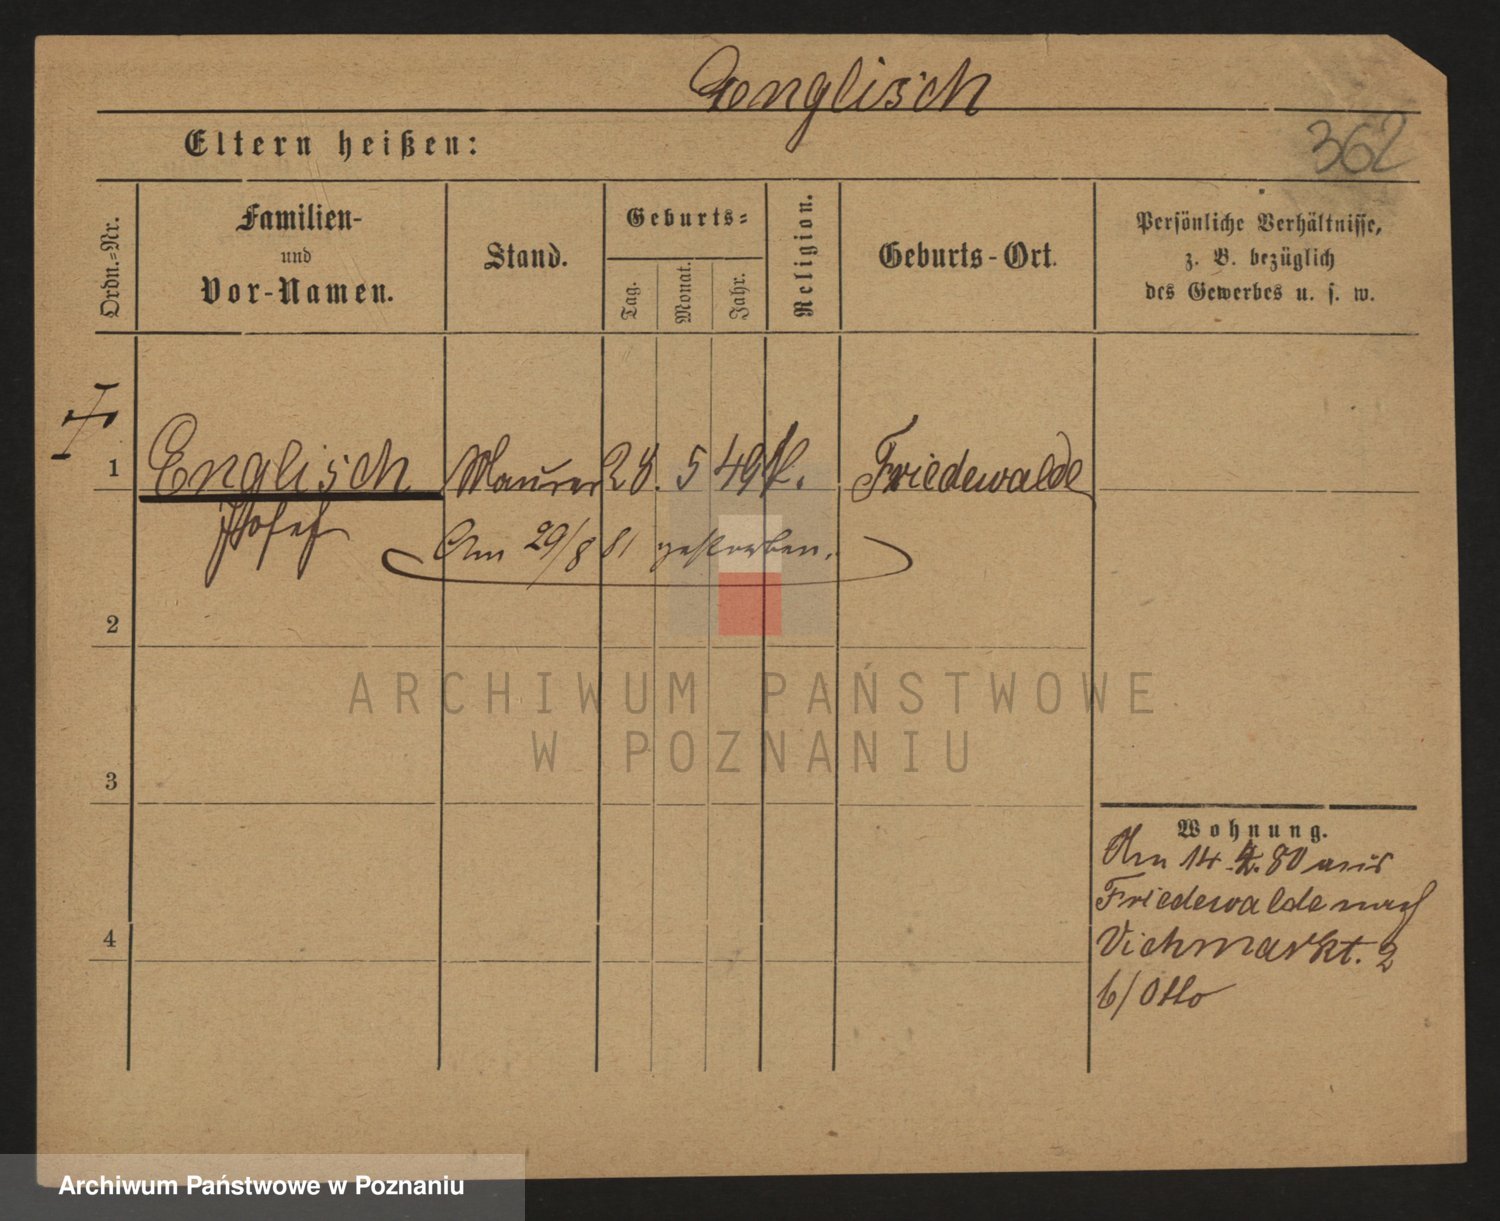 Englisch
362
Eltern heißen:
Ordn.=Nr.
Familien-
und
Vor-Namen.
Stand.
Geburts=
Tag.
Monat.
Jahr.
Religion.
Geburts-Ort.
Persönliche Verhältnisse,
z. B. bezüglich
des Gewerbes u. s. w.
1 Englisch Maurer 28. 5 49 k. Friedewalde
Josef
Am 29/8 81 gestorben.
2
3
4
Wohnung.
Am 14. 80 aus
Friedewalde nach
Viehmarkt. 2
b/ Otto
ARCHIWUM PAŃSTWOWE
W POZNANIU
Archiwum Państwowe w Poznaniu